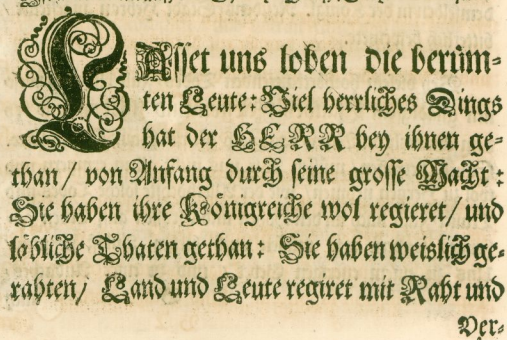 LAsset uns loben die berüm-
ten Leute: Viel herrliches Dings
hat der HERR bey ihnen ge-
than / von Anfang durch seine grosse Macht :
Sie haben ihre Königreiche wol regieret / und
löbliche Thaten gethan : Sie haben weislich ge-
rahten / Land und Leute regiret mit Raht und
Ver-